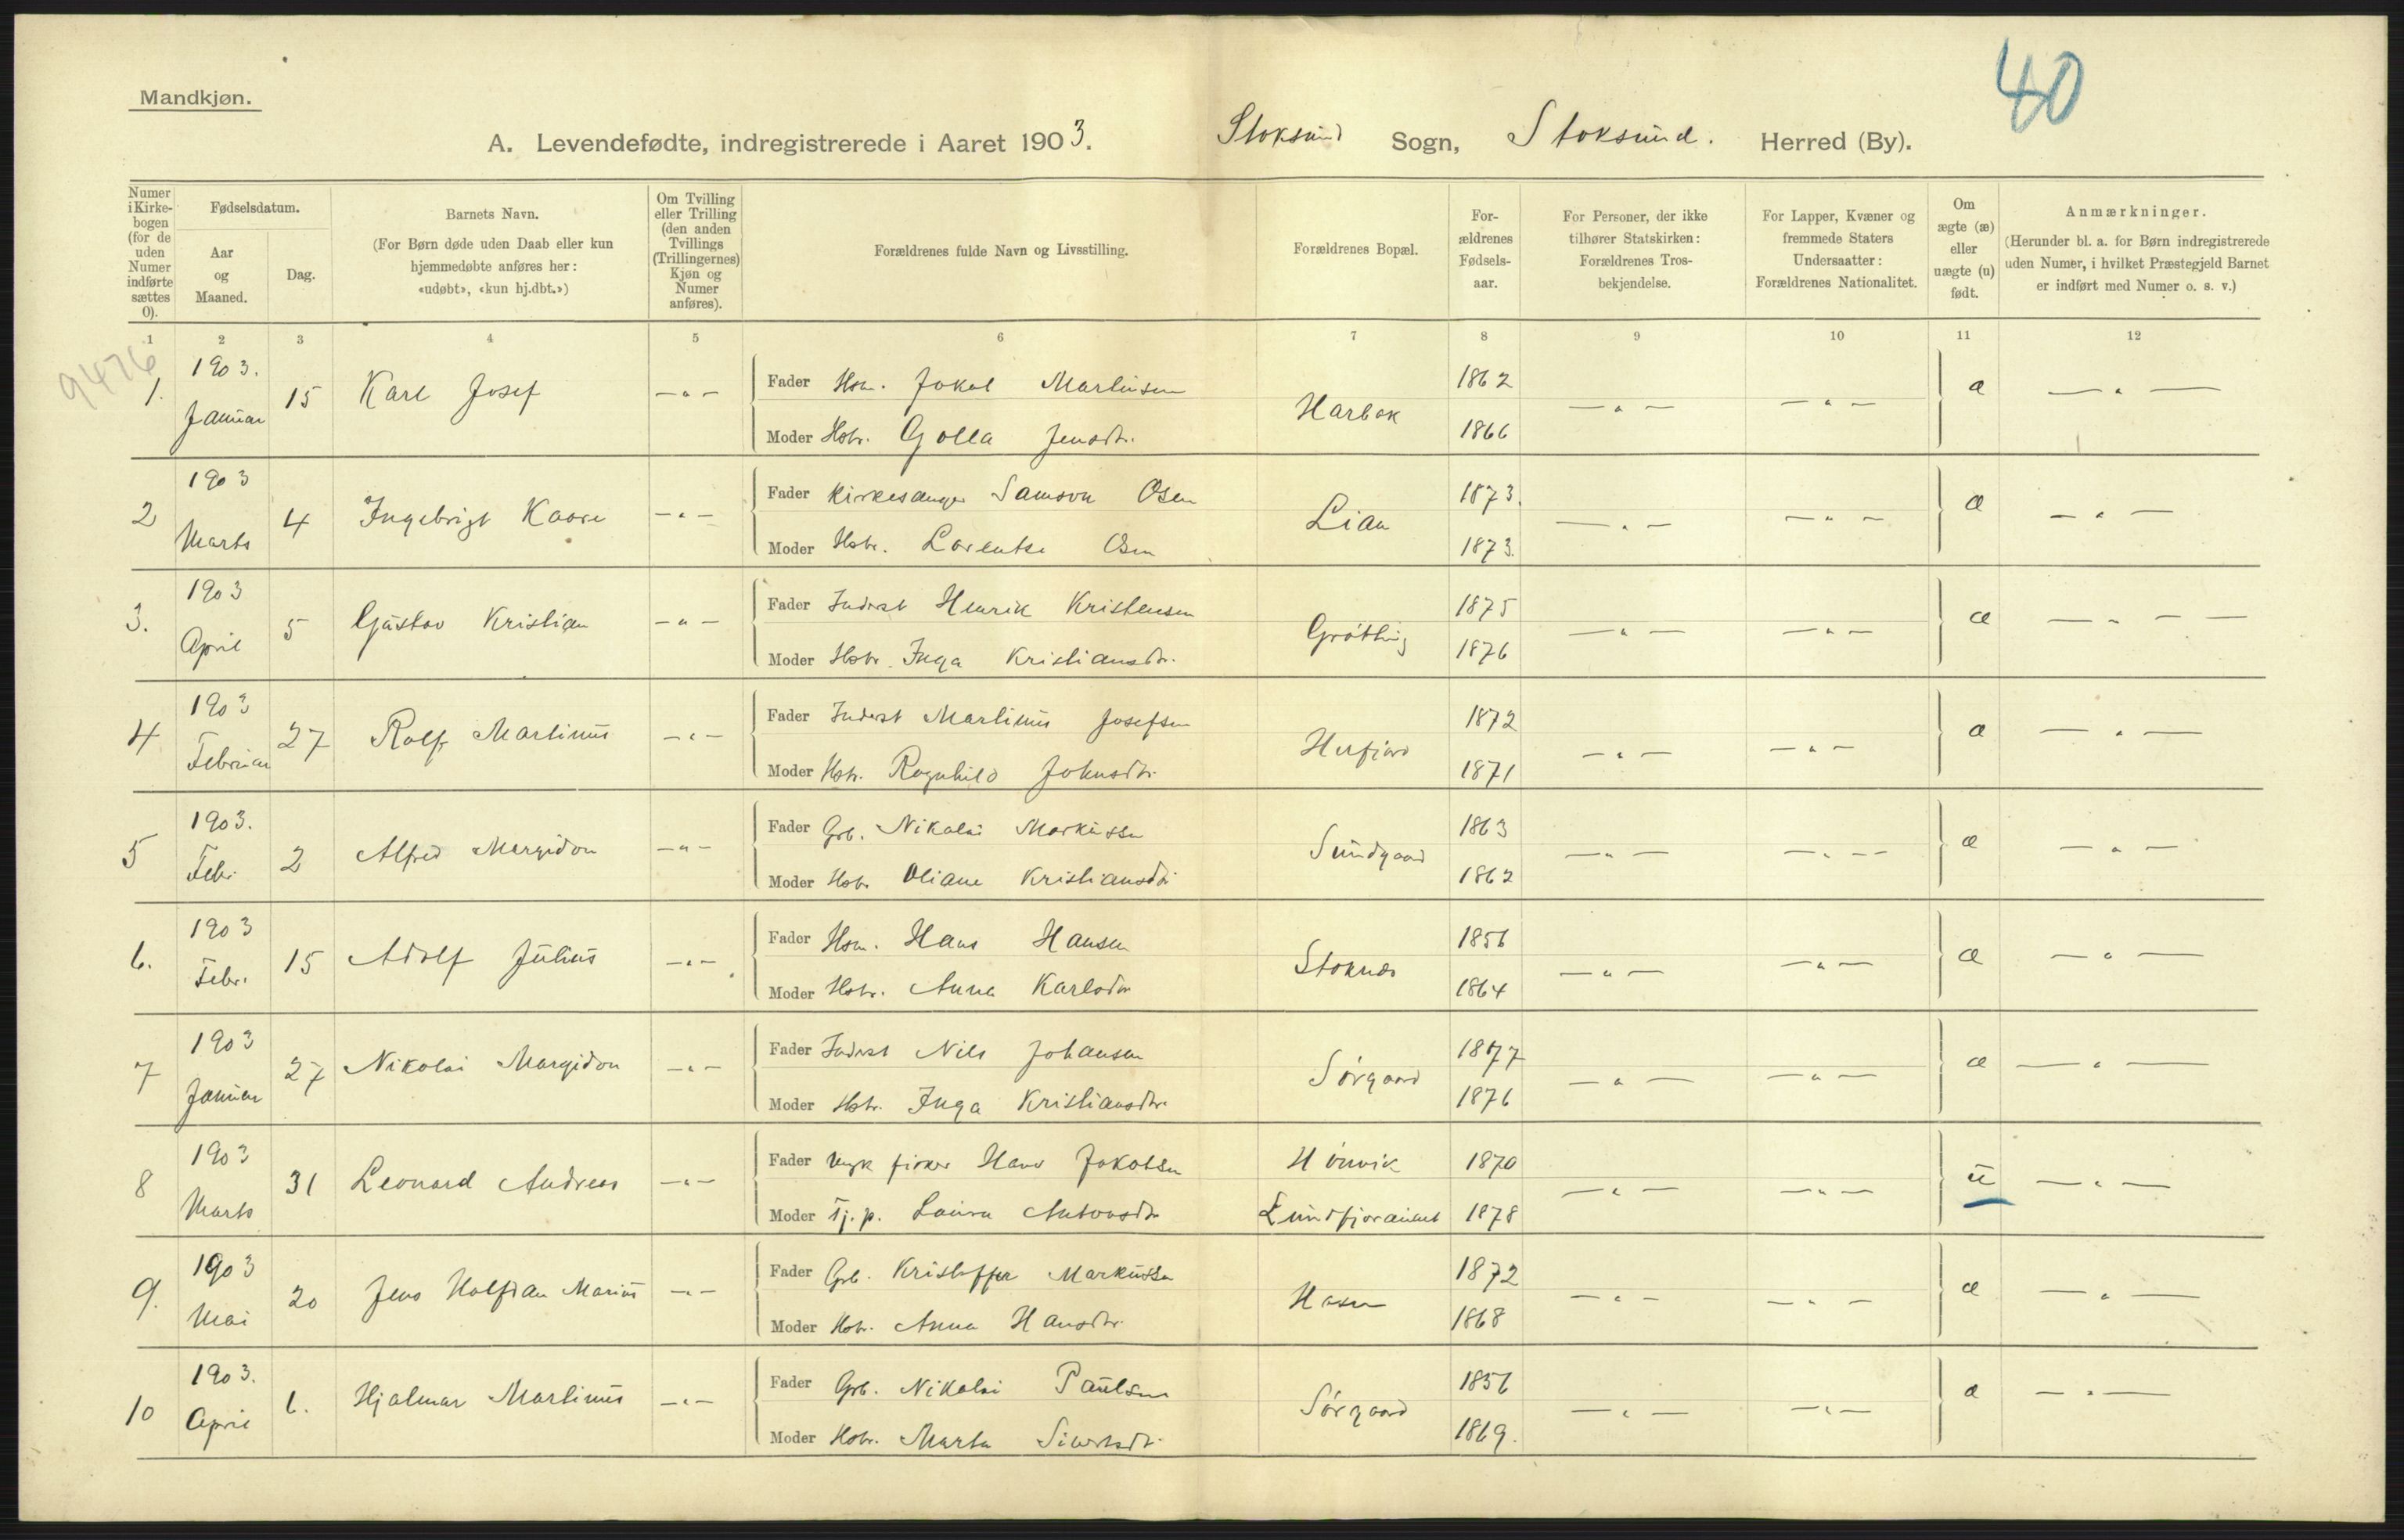 40
Mandkjøn.
A. Levendefødte, indregistrerede i Aaret 1903. Stoksund Sogn, Stoksund. Herred (By).
Numer i Kirkebogen (for de uden Numer indførte sættes 0).
Fødselsdatum.
Aar og Maaned.
Dag.
Barnets Navn.
(For Børn døde uden Daab eller kun hjemmedøbte anføres her: «udøbt», «kun hj.dbt.»)
Om Tvilling eller Trilling (den anden Tvillings (Trillingernes) Kjøn og Numer anføres).
Forældrenes fulde Navn og Livsstilling.
Forældrenes Bopæl.
Forældrenes Fødselsaar.
For Personer, der ikke tilhører Statskirken: Forældrenes Trosbekjendelse.
For Lapper, Kvæner og fremmede Staters Undersaatter: Forældrenes Nationalitet.
Om ægte (æ) eller uægte (u) født.
Anmærkninger.
(Herunder bl. a. for Børn indregistrerede uden Numer, i hvilket Præstegjeld Barnet er indført med Numer o. s. v.)
1 2 3 4 5 6 7 8 9 10 11 12
9476
1. 1903. Januar 15 Karl Josef — " — Fader Hsm. Jakob Martinsen Harbak 1862 — " — — " — æ — " —
Moder Hstr. Golla Jensdtr. 1866
2 1903 Marts 4 Ingebrigt Kaare — " — Fader Kirkesanger Samson Osen Lian 1873. — " — — " — æ — " —
Moder Hstr. Lorentse Osen 1873.
3. 1903 April 5 Gustav Kristian — " — Fader Inderst Henrik Kristensen Grøtting 1875 — " — — " — æ — " — —
Moder Hstr. Inga Kristiansdtr. 1876
4 1903 Februar 27 Rolf Martinus — " — Fader Inderst Martinus Josefsen Herfjord 1872 — " — — " — æ — " —
Moder Hstr. Ragnhild Johnsdtr. 1871
5 1903. Febr. 2 Alfred Margidon — " — Fader Grb. Nikolai Markussen Sundgaard 1863 — " — — " — — æ — " —
Moder Hstr. Oliane Kristiansdtr 1862
6. 1903 Febr. 15 Adolf Julius — " — Fader Hsm. Hans Hansen Stoknes 1856 — " — — " — æ — " —
Moder Hstr. Anna Karlsdtr 1864
7 1903 Januar 27 Nikolai Margidon — " — Fader Inderst Nils Johansen Sørgaard 1877 — " — — " — æ — " —
Moder Hstr. Inga Kristiansdtr. 1876
8 1903 Marts 31 Leonard Andreas — " — Fader Ungk fisker Hans Jakobsen Hønvik 1870 — " — — " — u — " —
Moder Tj. p. Laura Antonsdtr 1878
9. 1903 Mai 20 Jens Halfdan Marius — " — Fader Grb. Kristoffer Markussen Hasen 1872 — " — — " — æ — " —
Moder Hstr. Anna Hansdtr. 1868
10 1903. April 6. Hjalmar Martinus — " — Fader Grb. Nikolai Paulsen Sørgaard 1856 — " — — " — æ — " —
Moder Hstr. Marta Sivertsdtr. 1869.